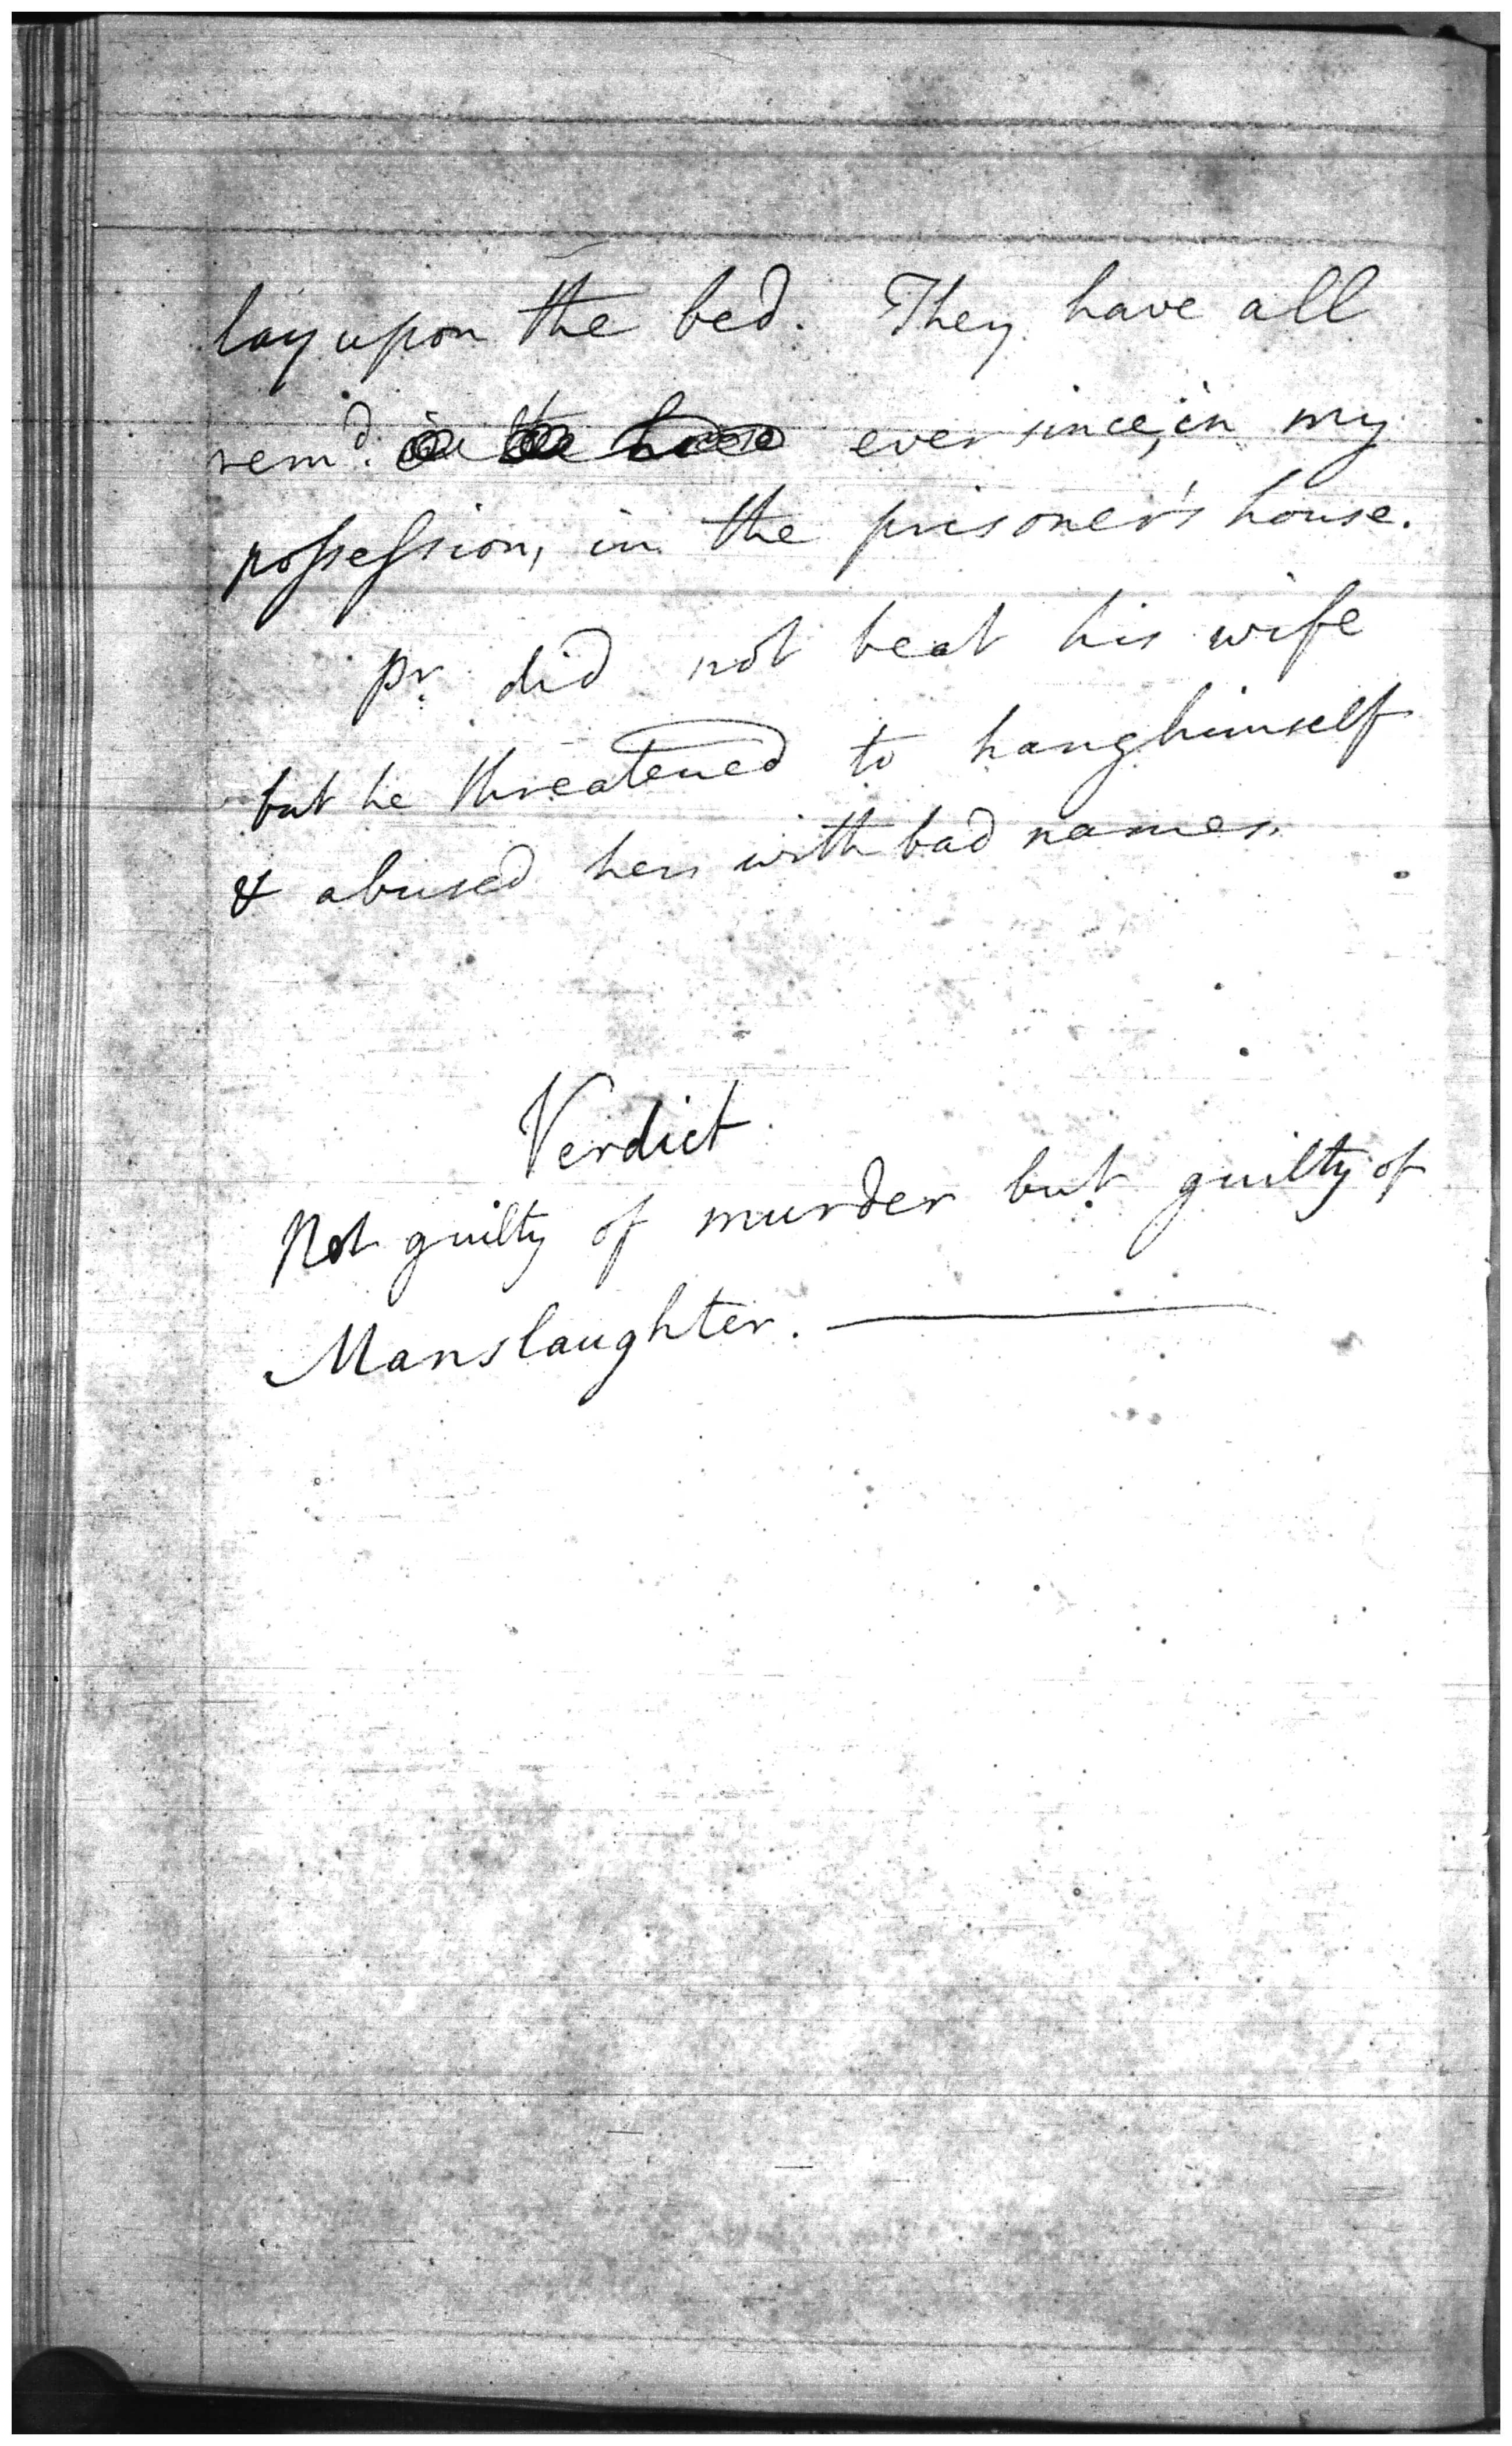 lay upon the bed. They have all
remd. in the house ever since, in my
possession, in the prisoner's house.
Pr. did not beat his wife
but he threatened to hang himself
& abused her with bad names.
Verdict
Not guilty of murder but guilty of
Manslaughter.